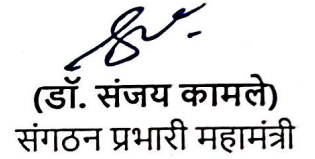 (डॉ. संजय कामले)
संगठन प्रभारी महामंत्री